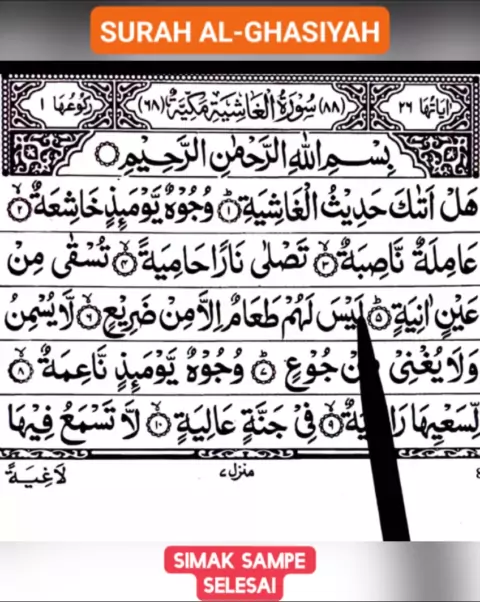 SURAH AL-GHASIYAH
اٰيَاتُهَا ٢٦ (٨٨) سُوْرَةُ الْغَاشِيَةِ مَكِّيَّةٌ (٦٨) رُكُوْعُهَا ١
بِسْمِ اللّٰهِ الرَّحْمٰنِ الرَّحِيْمِ
هَلْ اَتٰىكَ حَدِيْثُ الْغَاشِيَةِ ۝١ وُجُوْهٌ يَّوْمَئِذٍ خَاشِعَةٌ ۝٢
عَامِلَةٌ نَّاصِبَةٌ ۝٣ تَصْلٰى نَارًا حَامِيَةً ۝٤ تُسْقٰى مِنْ
عَيْنٍ اٰنِيَةٍ ۝٥ لَيْسَ لَهُمْ طَعَامٌ اِلَّا مِنْ ضَرِيْعٍ ۝٦ لَّا يُسْمِنُ
وَلَا يُغْنِيْ مِنْ جُوْعٍ ۝٧ وُجُوْهٌ يَّوْمَئِذٍ نَّاعِمَةٌ ۝٨
لِّسَعْيِهَا ۝٩ فِيْ جَنَّةٍ عَالِيَةٍ ۝١٠ لَّا تَسْمَعُ فِيْهَا
منزل ٧
لَاغِيَةً
SIMAK SAMPE
SELESAI